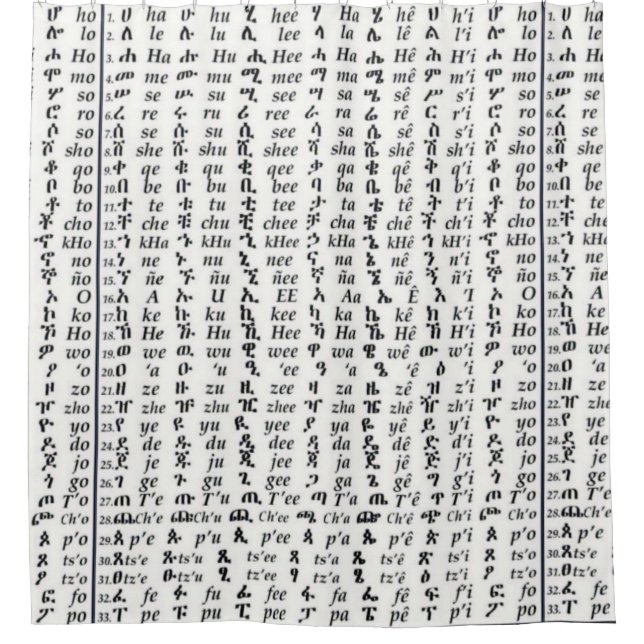 ሆ ho 1. ሀ ha ሁ hu ሂ hee ሃ Ha ሄ hê ህ h'i ሆ ho 1. ሀ ha
ሎ lo 2. ለ le ሉ lu ሊ lee ላ la ሌ lê ል l'i ሎ lo 2. ለ le
ሖ Ho 3. ሐ Ha ሑ Hu ሒ Hee ሓ Ha ሔ Hê ሕ H'i ሖ Ho 3. ሐ Ha
ሞ mo 4. መ me ሙ mu ሚ mee ማ ma ሜ mê ም m'i ሞ mo 4. መ me
ሦ so 5. ሠ se ሡ su ሢ see ሣ sa ሤ sê ሥ s'i ሦ so 5. ሠ se
ሮ ro 6. ረ re ሩ ru ሪ ree ራ ra ሬ rê ር r'i ሮ ro 6. ረ re
ሶ so 7. ሰ se ሱ su ሲ see ሳ sa ሴ sê ስ s'i ሶ so 7. ሰ se
ሾ sho 8. ሸ she ሹ shu ሺ shee ሻ sha ሼ shê ሽ sh'i ሾ sho 8. ሸ she
ቆ qo 9. ቀ qe ቁ qu ቂ qee ቃ qa ቄ qê ቅ q'i ቆ qo 9. ቀ qe
ቦ bo 10. በ be ቡ bu ቢ bee ባ ba ቤ bê ብ b'i ቦ bo 10. በ be
ቶ to 11. ተ te ቱ tu ቲ tee ታ ta ቴ tê ት t'i ቶ to 11. ተ te
ቾ cho 12. ቸ che ቹ chu ቺ chee ቻ cha ቼ chê ች ch'i ቾ cho 12. ቸ che
ኆ kHo 13. ኀ kHa ኁ kHu ኂ kHee ኃ kHa ኄ kHê ኅ kH'i ኆ kHo 13. ኀ kHa
ኖ no 14. ነ ne ኑ nu ኒ nee ና na ኔ nê ን n'i ኖ no 14. ነ ne
ኞ ño 15. ኘ ñe ኙ ñu ኚ ñee ኛ ña ኜ ñê ኝ ñ'i ኞ ño 15. ኘ ñe
ኦ O 16. አ A ኡ U ኢ EE ኣ Aa ኤ Ê እ 'I ኦ O 16. አ A
ኮ ko 17. ከ ke ኩ ku ኪ kee ካ ka ኬ kê ክ k'i ኮ ko 17. ከ ke
ኾ Ho 18. ኸ He ኹ Hu ኺ Hee ኻ Ha ኼ Hê ኽ H'i ኾ Ho 18. ኸ He
ዎ wo 19. ወ we ዉ wu ዊ wee ዋ wa ዌ wê ው w'i ዎ wo 19. ወ we
ዖ ‘o 20. ዐ ‘a ዑ ‘u ዒ ‘ee ዓ ‘a ዔ ‘ê ዕ ‘i ዖ ‘o 20. ዐ ‘a
ዞ zo 21. ዘ ze ዙ zu ዚ zee ዛ za ዜ zê ዝ z'i ዞ zo 21. ዘ ze
ዦ zho 22. ዠ zhe ዡ zhu ዢ zhee ዣ zha ዤ zhê ዥ zh'i ዦ zho 22. ዠ zhe
ዮ yo 23. የ ye ዩ yu ዪ yee ያ ya ዬ yê ይ y'i ዮ yo 23. የ ye
ዶ do 24. ደ de ዱ du ዲ dee ዳ da ዴ dê ድ d'i ዶ do 24. ደ de
ጆ jo 25. ጀ je ጁ ju ጂ jee ጃ ja ጄ jê ጅ j'i ጆ jo 25. ጀ je
ጎ go 26. ገ ge ጉ gu ጊ gee ጋ ga ጌ gê ግ g'i ጎ go 26. ገ ge
ጦ T'o 27. ጠ T'e ጡ T'u ጢ T'ee ጣ T'a ጤ T'ê ጥ T'i ጦ T'o 27. ጠ T'e
ጮ Ch'o 28. ጨ Ch'e ጩ Ch'u ጪ Ch'ee ጫ Ch'a ጬ Ch'ê ጭ Ch'i ጮ Ch'o 28. ጨ Ch'e
ጶ p'o 29. ጰ p'e ጱ p'u ጲ p'ee ጳ p'a ጴ p'ê ጵ p'i ጶ p'o 29. ጰ p'e
ጾ ts'o 30. ጸ ts'e ጹ ts'u ጺ ts'ee ጻ ts'a ጼ ts'ê ጽ ts'i ጾ ts'o 30. ጸ ts'e
ፆ tz'o 31. ፀ tz'e ፁ tz'u ፂ tz'ee ፃ tz'a ፄ tz'ê ፅ tz'i ፆ tz'o 31. ፀ tz'e
ፎ fo 32. ፈ fe ፉ fu ፊ fee ፋ fa ፌ fê ፍ f'i ፎ fo 32. ፈ fe
ፖ po 33. ፐ pe ፑ pu ፒ pee ፓ pa ፔ pê ፕ p'i ፖ po 33. ፐ pe